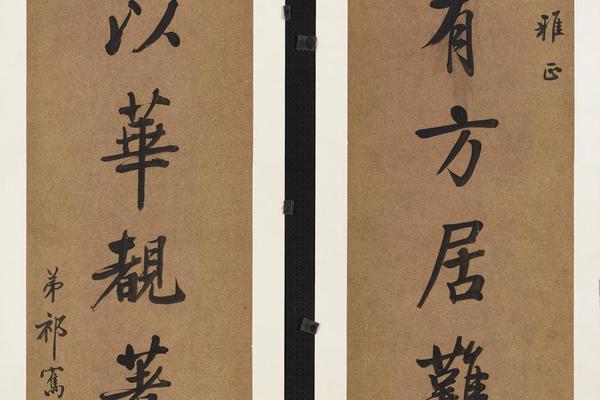 雅正
有方居難
以華覩著
弟祁寯